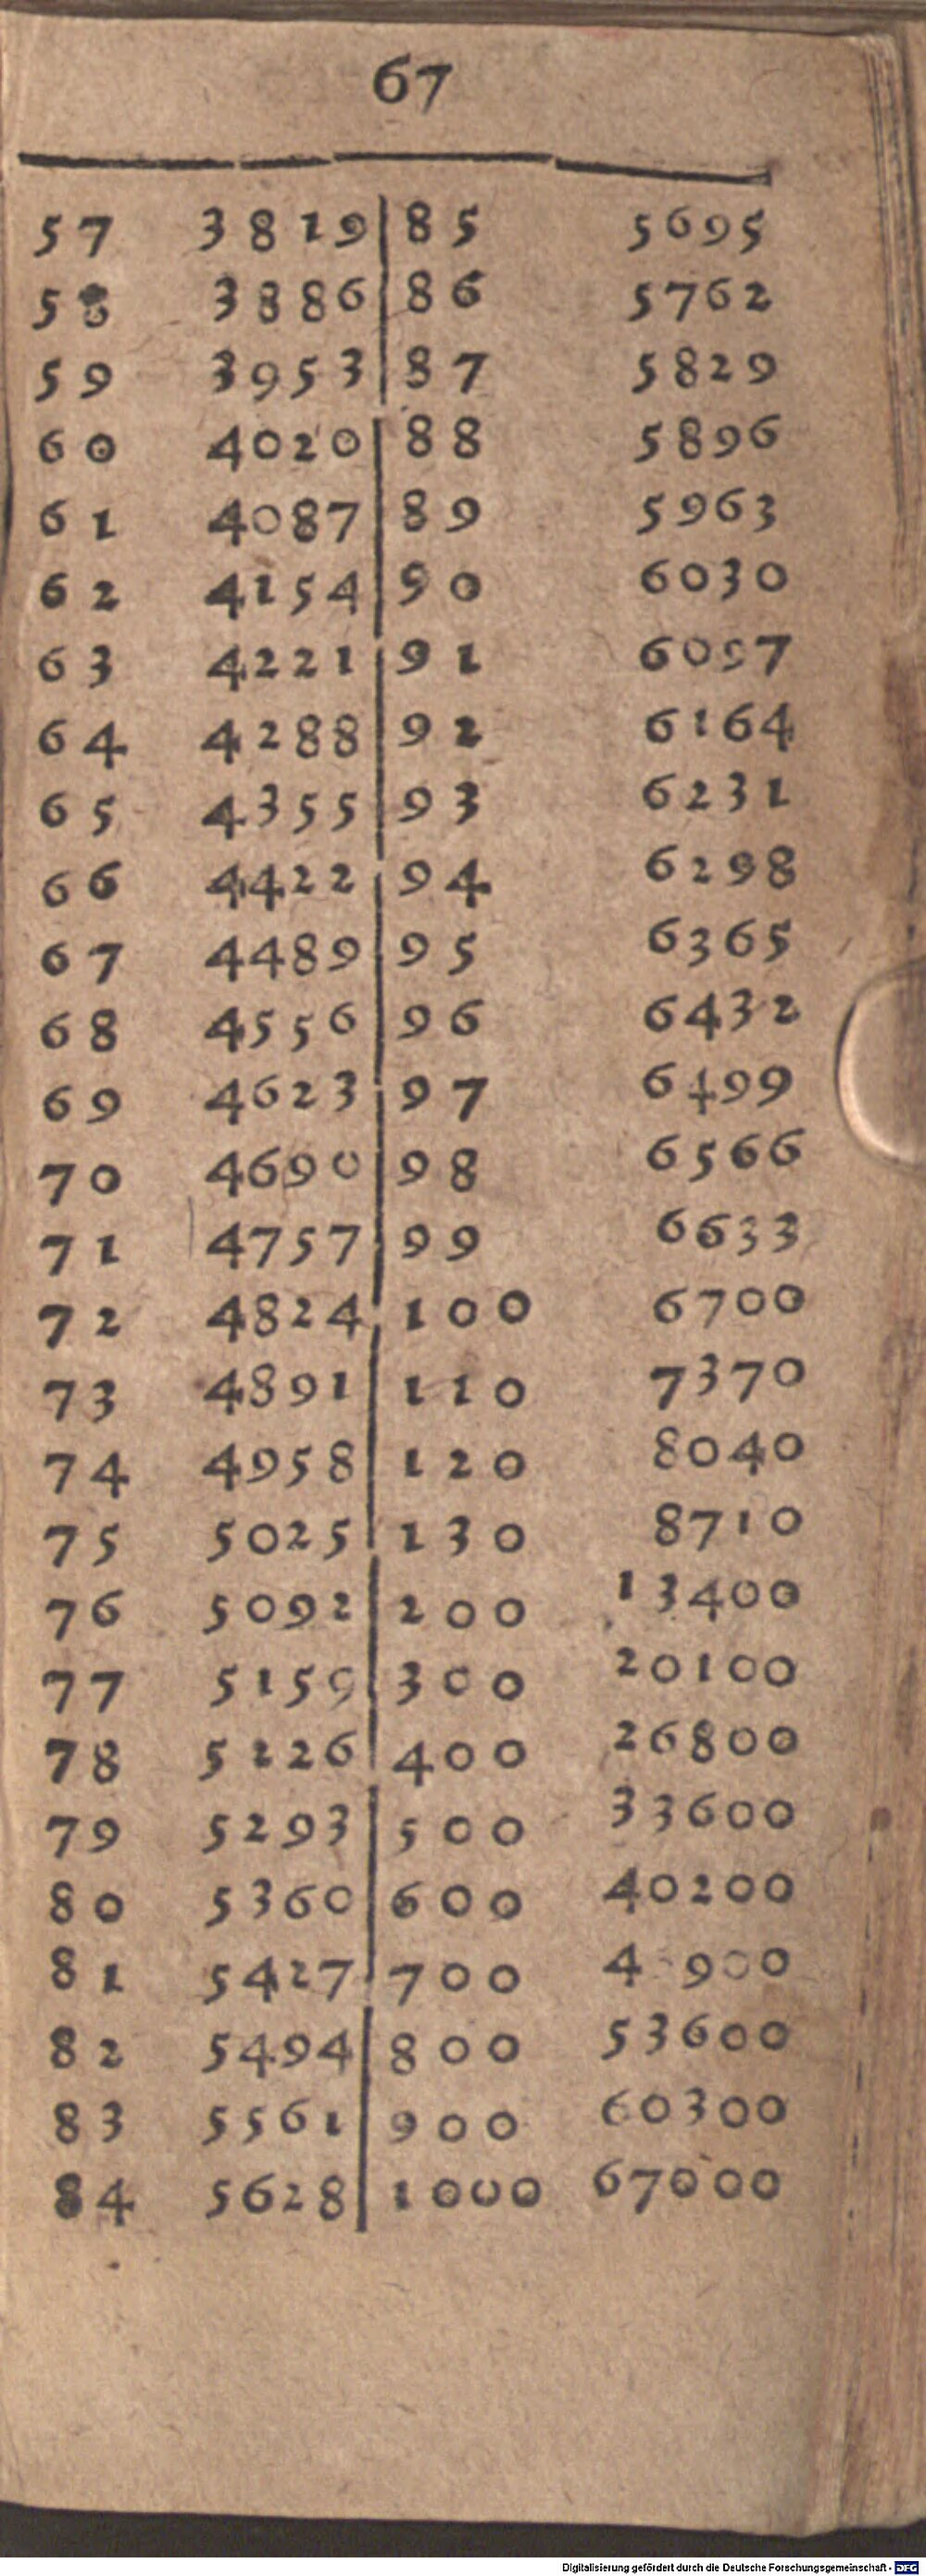 67
57 3819 85 5695
58 3886 86 5762
59 3953 87 5829
60 4020 88 5896
61 4087 89 5963
62 4154 90 6030
63 4221 91 6097
64 4288 92 6164
65 4355 93 6231
66 4422 94 6298
67 4489 95 6365
68 4556 96 6432
69 4623 97 6499
70 4690 98 6566
71 4757 99 6633
72 4824 100 6700
73 4891 110 7370
74 4958 120 8040
75 5025 130 8710
76 5092 200 13400
77 5159 300 20100
78 5226 400 26800
79 5293 500 33600
80 5360 600 40200
81 5427 700
82 5494 800 53600
83 5561 900 60300
84 5628 1000 67000
Digitalisierung gefördert durch die Deutsche Forschungsgemeinschaft - DFG